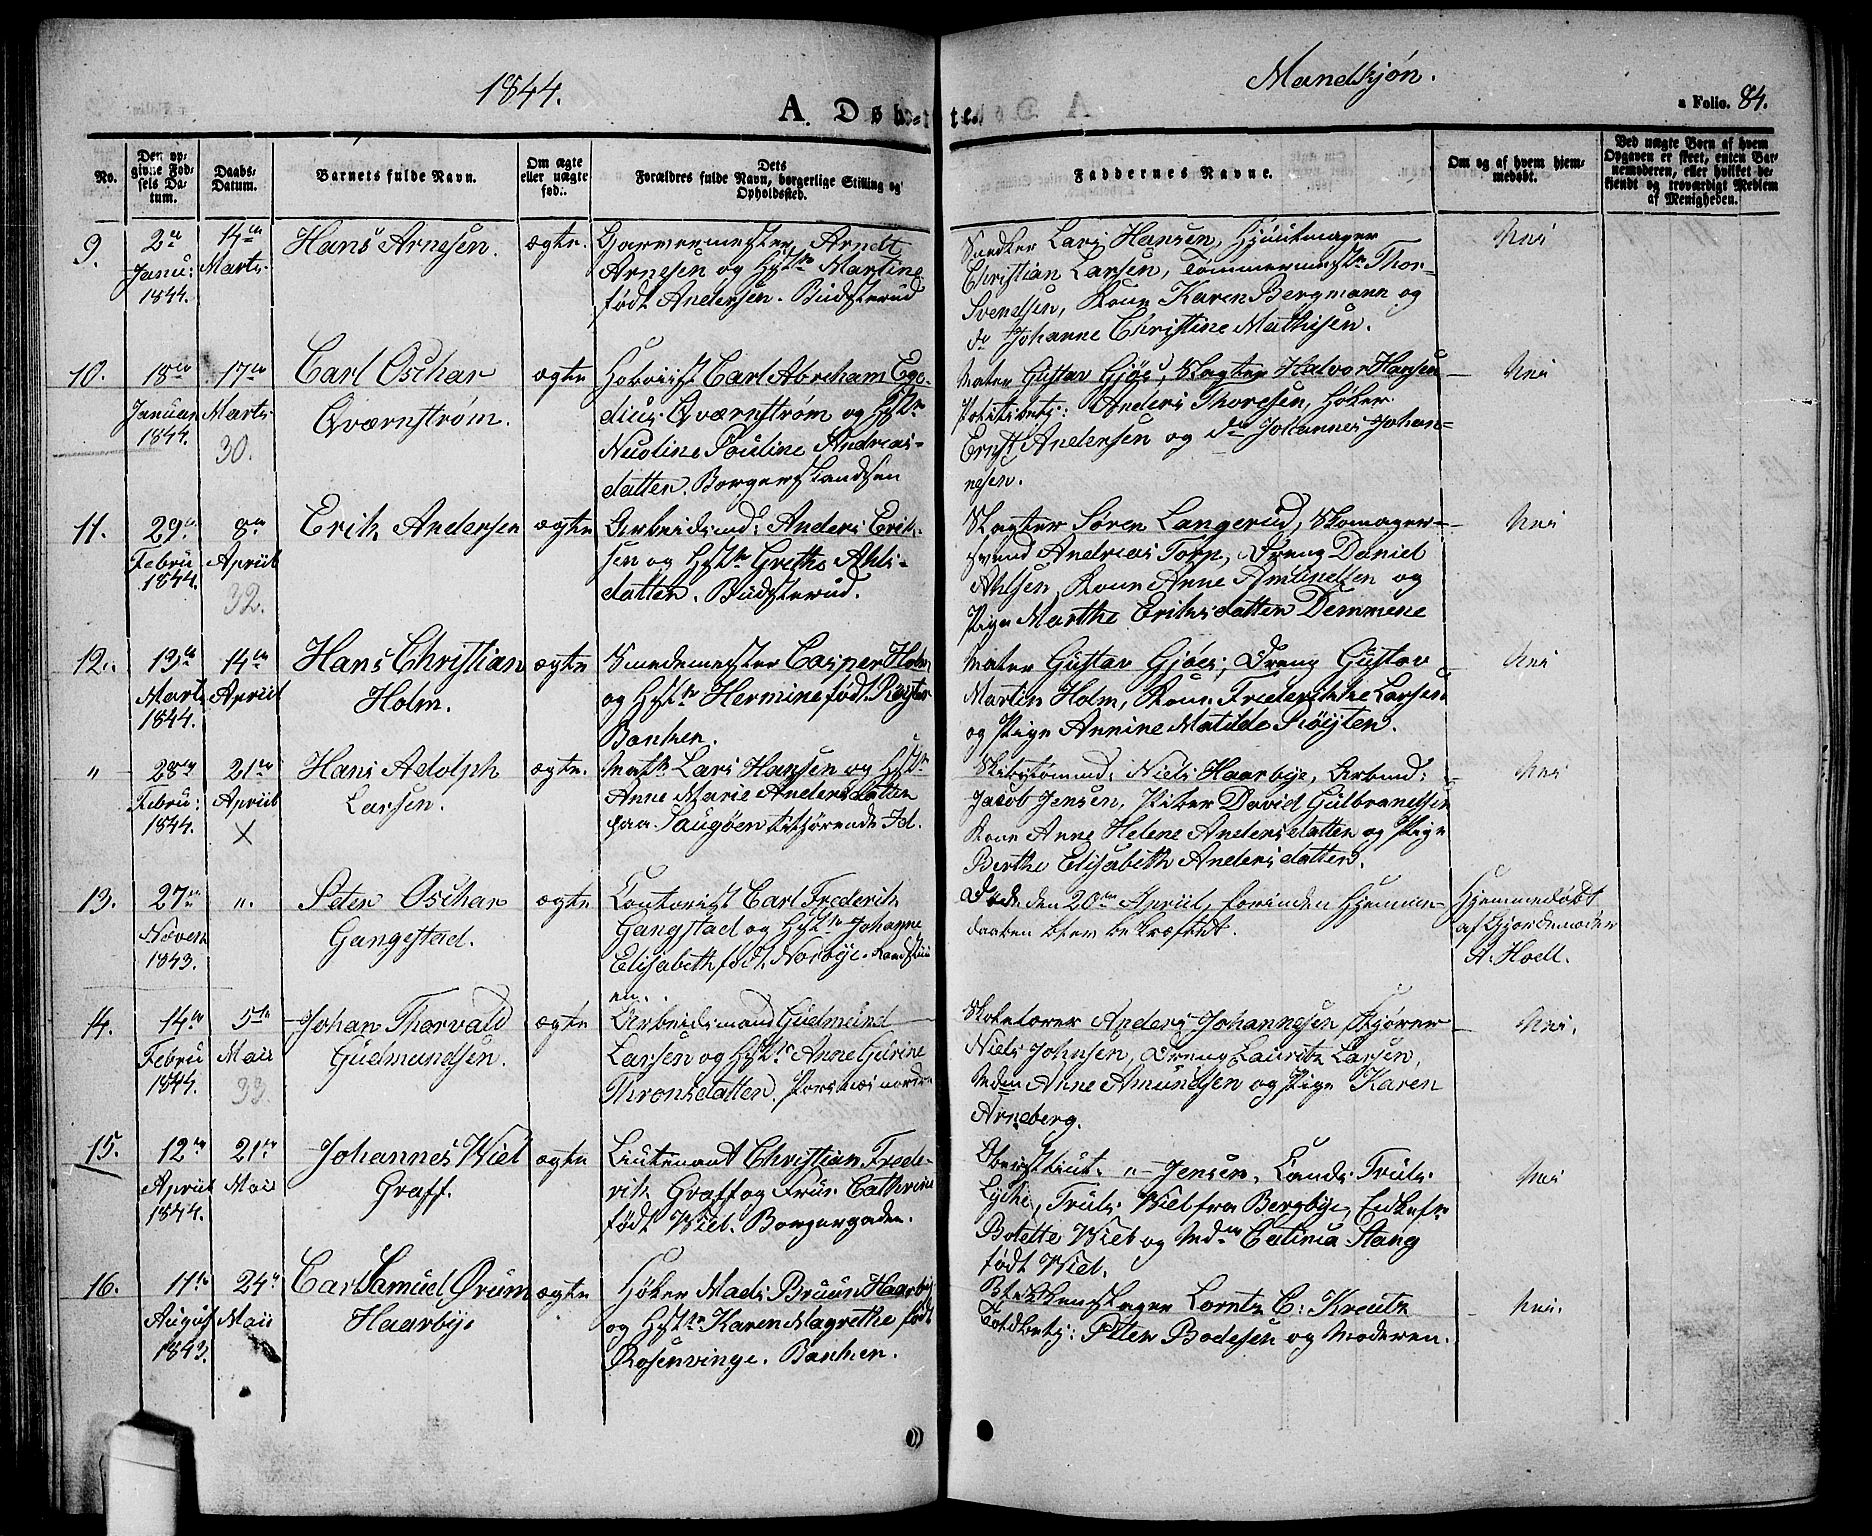 1844.
Mandkjøn.
A. Døbte.
a Folio. 84.
No.
Den opgivne Fødsels Datum.
Daabs-Datum.
Barnets fulde Navn.
Om ægte eller uægte fød.
Dets Forældres fulde Navn, borgerlige Stilling og Opholdssted.
Faddernes Navne.
Om og af hvem hjemmedøbt.
Ved uægte Børn af hvem Opgaven er skeet, enten Barnemoderen, eller hvilket bekjendt og troværdigt Medlem af Menigheden.
9.
2den Janu: 1844.
14de Marts.
Hans Arnesen.
ægte.
Garvermester Arndt
Arnesen og Hstr Martine
født Andersen. Budsterud
Snedker Lars Hansen, Hjulmager
Christian Larsen, Tømmermestr Thor
Svendsen, Kone Karen Bergmann og
do Johanne Christine Mathisen.
Nei
10.
18de Januar 1844.
17de Marts.
30.
Carl Oschar
Qværnstrøm.
ægte
Hoboist Carl Abraham Ege-
dius Qværnstrøm og Hstr
Nicoline Pauline Andreas-
datter. Borgerskandsen
Maler Gustav Gjös, Slagter Halvor Hansen
Politibetj: Anders Thoresen, Høker
Ernst Andersen og do Johannes Johan-
nesen.
Nei
11.
29de Febru 1844.
8de April
32.
Erik Andersen
ægte
Arbeidsmd: Anders Erik-
sen og Hstr Grethe Ahls-
datter. Budsterud.
Slagter Søren Langerud, Skomager-
svend Andreas Torp, Dreng Daniel
Ahlsen, Kone Anne Amundsen og
Pige Marthe Eriksdatter Demmene
Nei
12.
13de Marts 1844.
14de April
Hans Christian
Holm.
ægte
Smedemester Casper Holm
og Hstr Hermine født Røyter
Banken.
Maler Gustav Gjöes, Dreng Gustav
Martin Holm, Kone Frederikke Larsen
og Pige Annine Matilde Röyter.
Nei
"
28de Febru: 1844.
21de April
X
Hans Adolph
Larsen.
ægte.
Mat: Lars Hansen og Hstr
Anne Marie Andersdatter
paa Saugøen tilhørende Id.
Skibstømmd: Niels Haarbye, Arbmd:
Jacob Jensen, Piber David Gulbrandsen
Kone Anne Helene Andersdatter og Pige
Berthe Elisabeth Andersdatter.
Nei
13.
27de Novem 1843.
".
Peter Oschar
Gangestad.
ægte
Contorist Carl Frederik
Gangstad og Hstr Johanne
Elisabeth født Norbye.
Døde den 20de April, forinden Hjemme-
daaben blev bekræftet.
Hjemmedøbt
af Gjordemoder
A. Hoell.
14.
14de Febru 1844.
5te Mai
33.
Johan Thorvald
Gudmundsen.
ægte
Arbeidsmand Gudmund
Larsen og Hstr Anne Gurine
Thronsdatter. Porsnæs nordre
Anders Johannesen, Kjører
Niels Johnsen, Dreng Lauritz Larsen,
Mdm Anne Amundsen og Pige Karen
Arneberg.
Nei.
15.
12te April 1844.
21de Mai
Johannes Wiel
Graff.
ægte
Lieutenant Christian Frede-
rik Graff og Frue Cathrine
født Wiel. Borgergaden.
Oberstlieut. "– Jensen, Cand: Truls
Lyche, Truls Wiel fra Bergbye, Enkefr
Bolette Wiel og Mdm Catinca Stang
født Wiel.
Nei
16.
11te August 1843.
24de Mai
Carl Samuel Ørum
Haarbye
ægte
Høker Mads Bruun Haarbye
og Hstr Karen Magrethe født
Rosenvinge. Banken.
Blikkenslager Lorntz C: Kreutz
Toldbetj: Peter Bodesen og Moderen.
Nei.